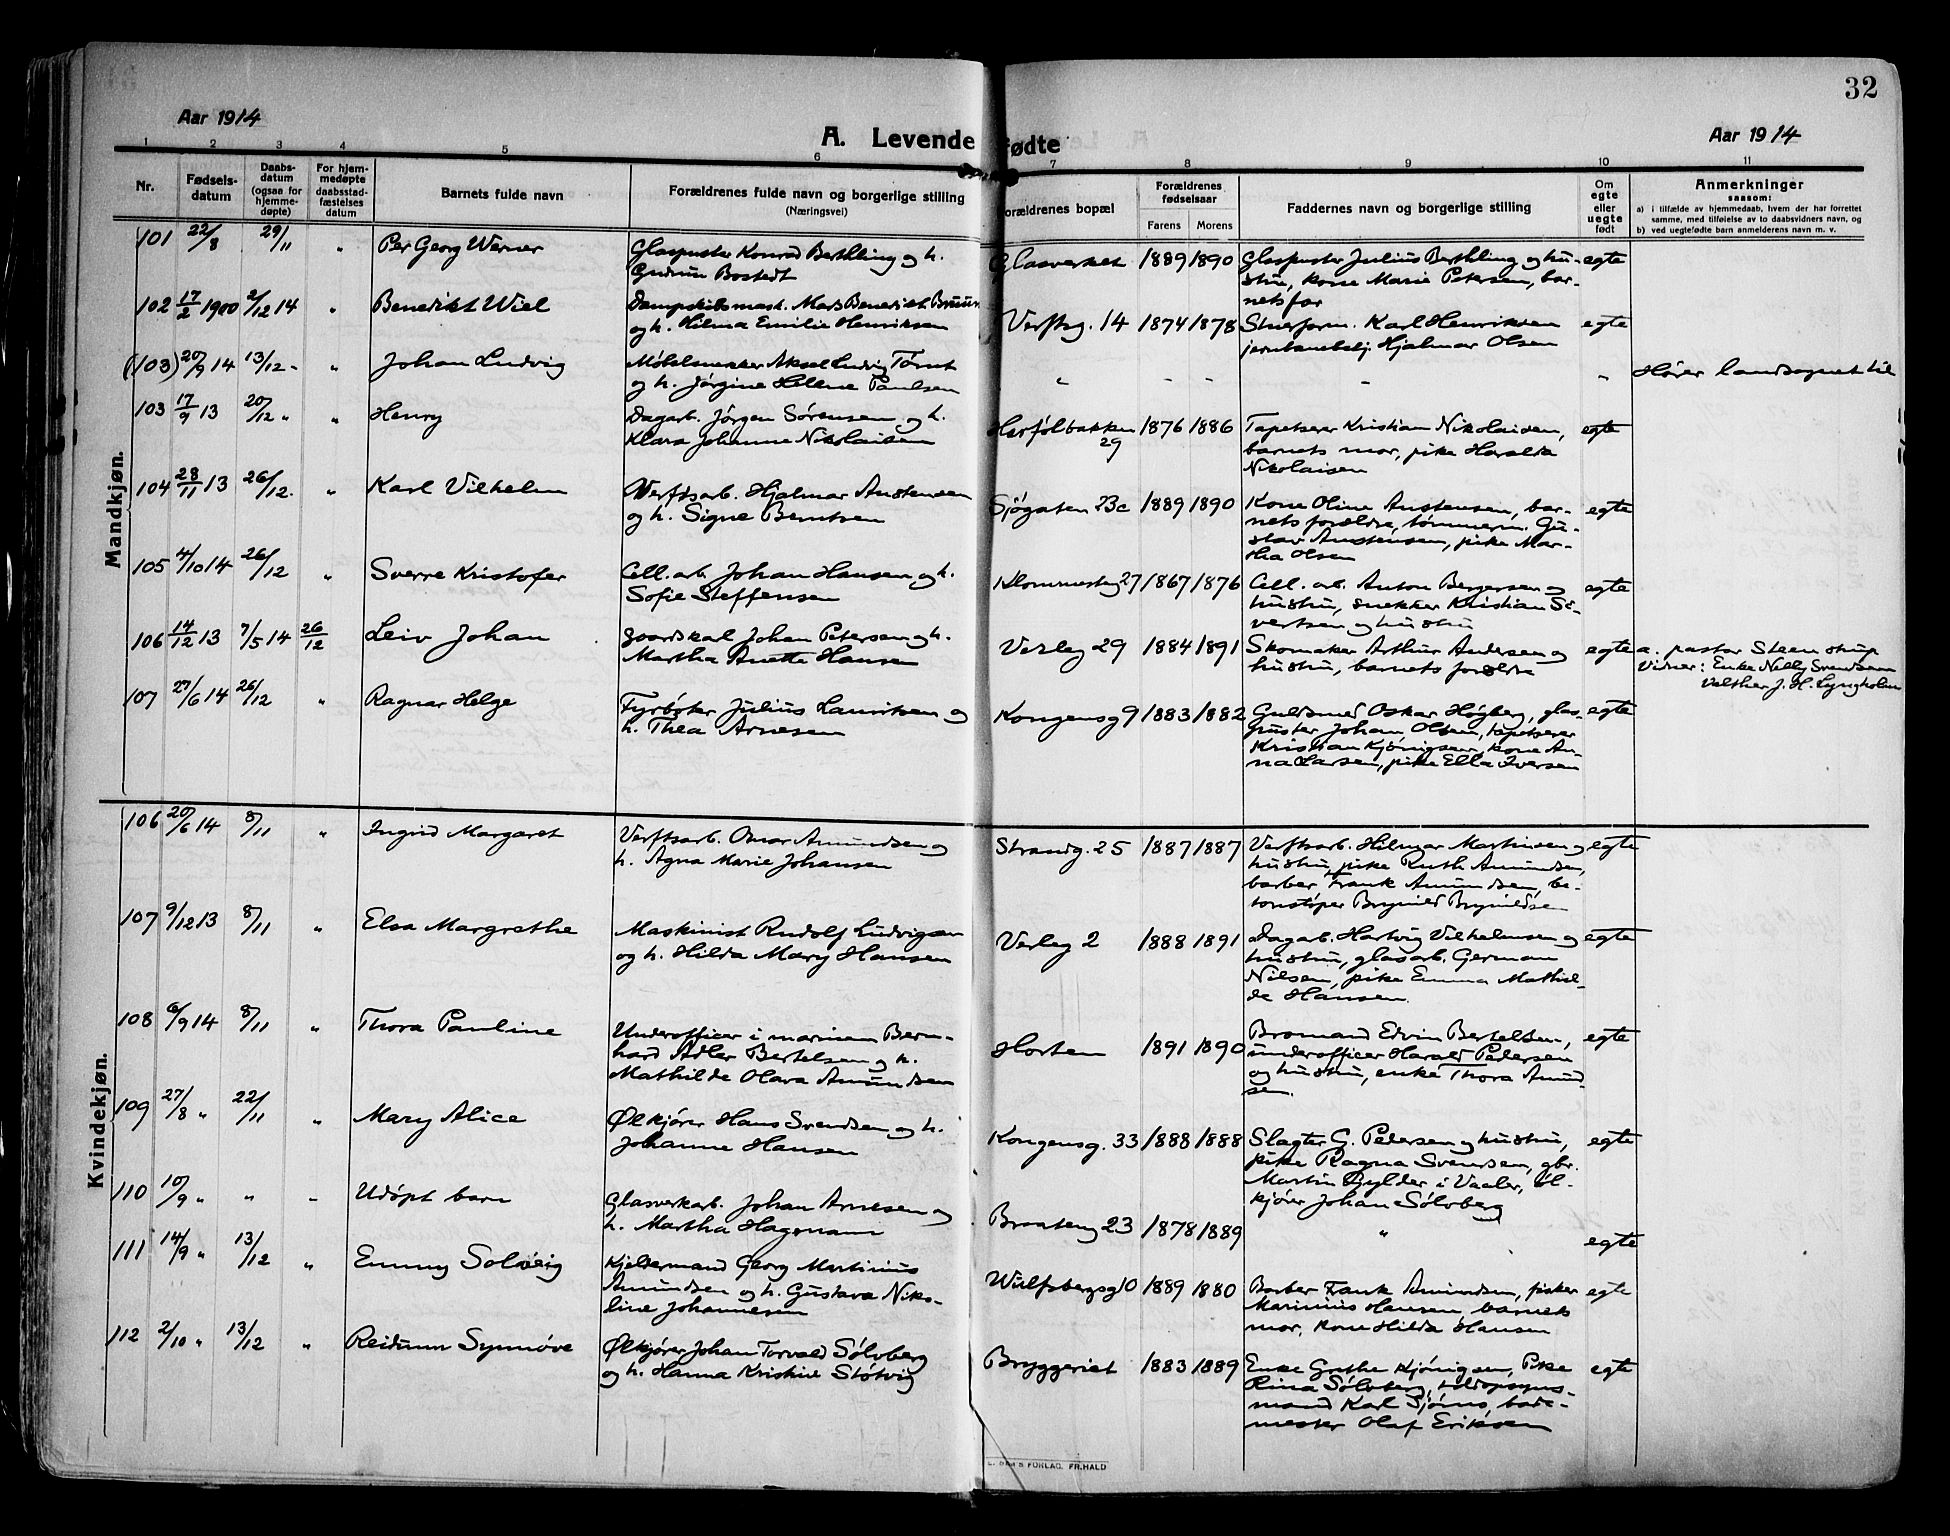 32
Aar 1914
A. Levende Fødte
Aar 1914
1 2 3 4 5 6 7 8 9 10 11
Nr.
Fødsels-
datum
Daabs-
datum
(ogsaa for
hjemme-
døpte)
For hjem-
medøpte
daabsstad-
fæstelses
datum
Barnets fulde navn
Forældrenes fulde navn og borgerlige stilling
(Næringsvei)
Forældrenes bopæl
Forældrenes
fødselsaar
Farens Morens
Faddernes navn og borgerlige stilling
Om
egte
eller
uegte
født
Anmerkninger
saasom:
a) i tilfælde av hjemmedaab, hvem der har forrettet
samme, med tilføielse av to daabsvidners navn, og
b) ved uegtefødte barn anmelderens navn m. v.
Mandkjøn.
101 22/8 29/11 „ Per Georg Werner
Glaspuster Konrad Berthling og h.
Gudrun Bostedt
Glasverket 1889 1890
Glaspuster Julius Berthling og hu-
stru, kone Marie Petersen, bar-
nets far
egte
102 17/2 1900 2/12 14 „ Benedikt Wiel
Dampskibsmask. Mads Benedikt Bruun
og h. Hilma Emilie Henriksen
Verftsg. 14 1874 1878
Stuerform. Karl Henriksen
jernbanebetj. Hjalmar Olsen
egte
(103) 20/9 14 13/12 - „ Johan Ludvig
Møbelsnekker Aksel Ludvig Tørnt
og h. Jørgine Helene Paulsen
„ - - - „
Hører landsognet til
103 17/9 13 20/12 „ „ Henry
Dagarb. Jörgen Sörensen og h.
Klara Johanne Nikolaisen
Herfølbakken
29
1876 1886
Tapetserer Kristian Nikolaisen,
barnets mor, pike Haralda
Nikolaisen
egte
104 28/11 13 26/12. „ Karl Vilhelm
Verftsarb. Hjalmar Austensen
og h. Signe Berntsen
Sjögaten 23c 1889 1890
Kone Oline Austensen, bar-
nets forældre, tömmerm. Gu-
stav Austensen, pike Mar-
tha Olsen
egte
105 4/10 14 26/12 „ Sverre Kristofer
Cell. arb. Johan Hansen og h.
Sofie Steffensen
Klommestg 27 1867 1876
Cell. arb. Anton Bergersen og
hustru, snekker Kristian Si-
vertsen og hustru
egte
106 14/12 13 7/5 14 26/12 Leiv Johan
Gaardskarl Johan Petersen og h.
Martha Anette Hansen
Verleg 29 1884 1891
Skomaker Arthur Andersen og
hustru, barnets forældre
egte
a. pastor Steenstrup
Vidner: Enke Nelly Svendsen
Valther J. H. Lyngholm
107 27/6 14 26/12 „ Ragnar Helge
Fyrböter Julius Lauritsen og
h. Thea Arnesen
Kongensg 9 1883 1882
Guldsmed Oskar Högberg, glas-
puster Johan Olsen, tapetserer
Kristian Kjönigsen, kone An-
na Larsen, pike Ella Iversen
egte
Kvindekjøn.
106 20/6 14 8/11 „ Ingrid Margaret
Verftsarb. Omar Amundsen og
h. Agna Marie Johansen
Strandg. 25 1887 1887
Verftsarb. Hilmar Martinsen og
hustru, pike Ruth Amundsen,
barber Frank Amundsen, be-
tonstöper Brynild Brynildsen
egte
107 9/12 13 8/11 „ Elsa Margrethe
Maskinist Rudolf Ludvigsen
og h. Hilda Mary Hansen
Verleg 2 1888 1891
Dagarb. Hartvig Vilhelmsen og
hustru, glasarb. German
Nilsen, pike Emma Mathil-
de Hansen.
egte
108 6/9 14 8/11 „ Thora Pauline
Underofficer i marinen Bern-
hard Adler Bertelsen og h.
Mathilde Olara Amundsen
Horten 1891 1890
Bromand Edvin Bertelsen,
underofficer Harald Pedersen
og hustru, enke Thora Amund-
sen.
egte
109 27/8 „ 22/11 „ Mary Alice
Ølkjörer Hans Svendsen og h.
Johanne Hansen
Kongensg. 33 1888 1888
Slagter G. Pedersen og hustru,
pike Ragna Svendsen, gbr.
Martin Gylder i Vaaler, øl-
kjörer Johan Sölvberg
egte
110 10/9 „ „ - Udöpt barn
Glasverkarb. Johan Arnesen og
h. Martha Hagemann
Braateng 23 1878 1889
„
egte
111 14/9 „ 13/12 „ Emmy Solveig
Kjeldermand Georg Martinius
Amundsen og h. Gustava Niko-
line Johannesen
Wulfsbergsg 10 1889 1880
Barber Frank Amundsen, fisker
Marinius Hansen, barnets
mor, kone Hilda Hansen
egte
112 2/10 „ 13/12 „ Reidunn Synnöve
Ølkjörer Johan Torvald Sölvberg
og h. Hanna Kristine Stötvig
Bryggeriet 1883 1889
Enke Grethe Kjönigsen, Pike
Rina Sölvberg, toldopsyns-
mand Karl Sjöms, bade-
mester Olaf Eriksen
egte
FORLAG. FR. HALD